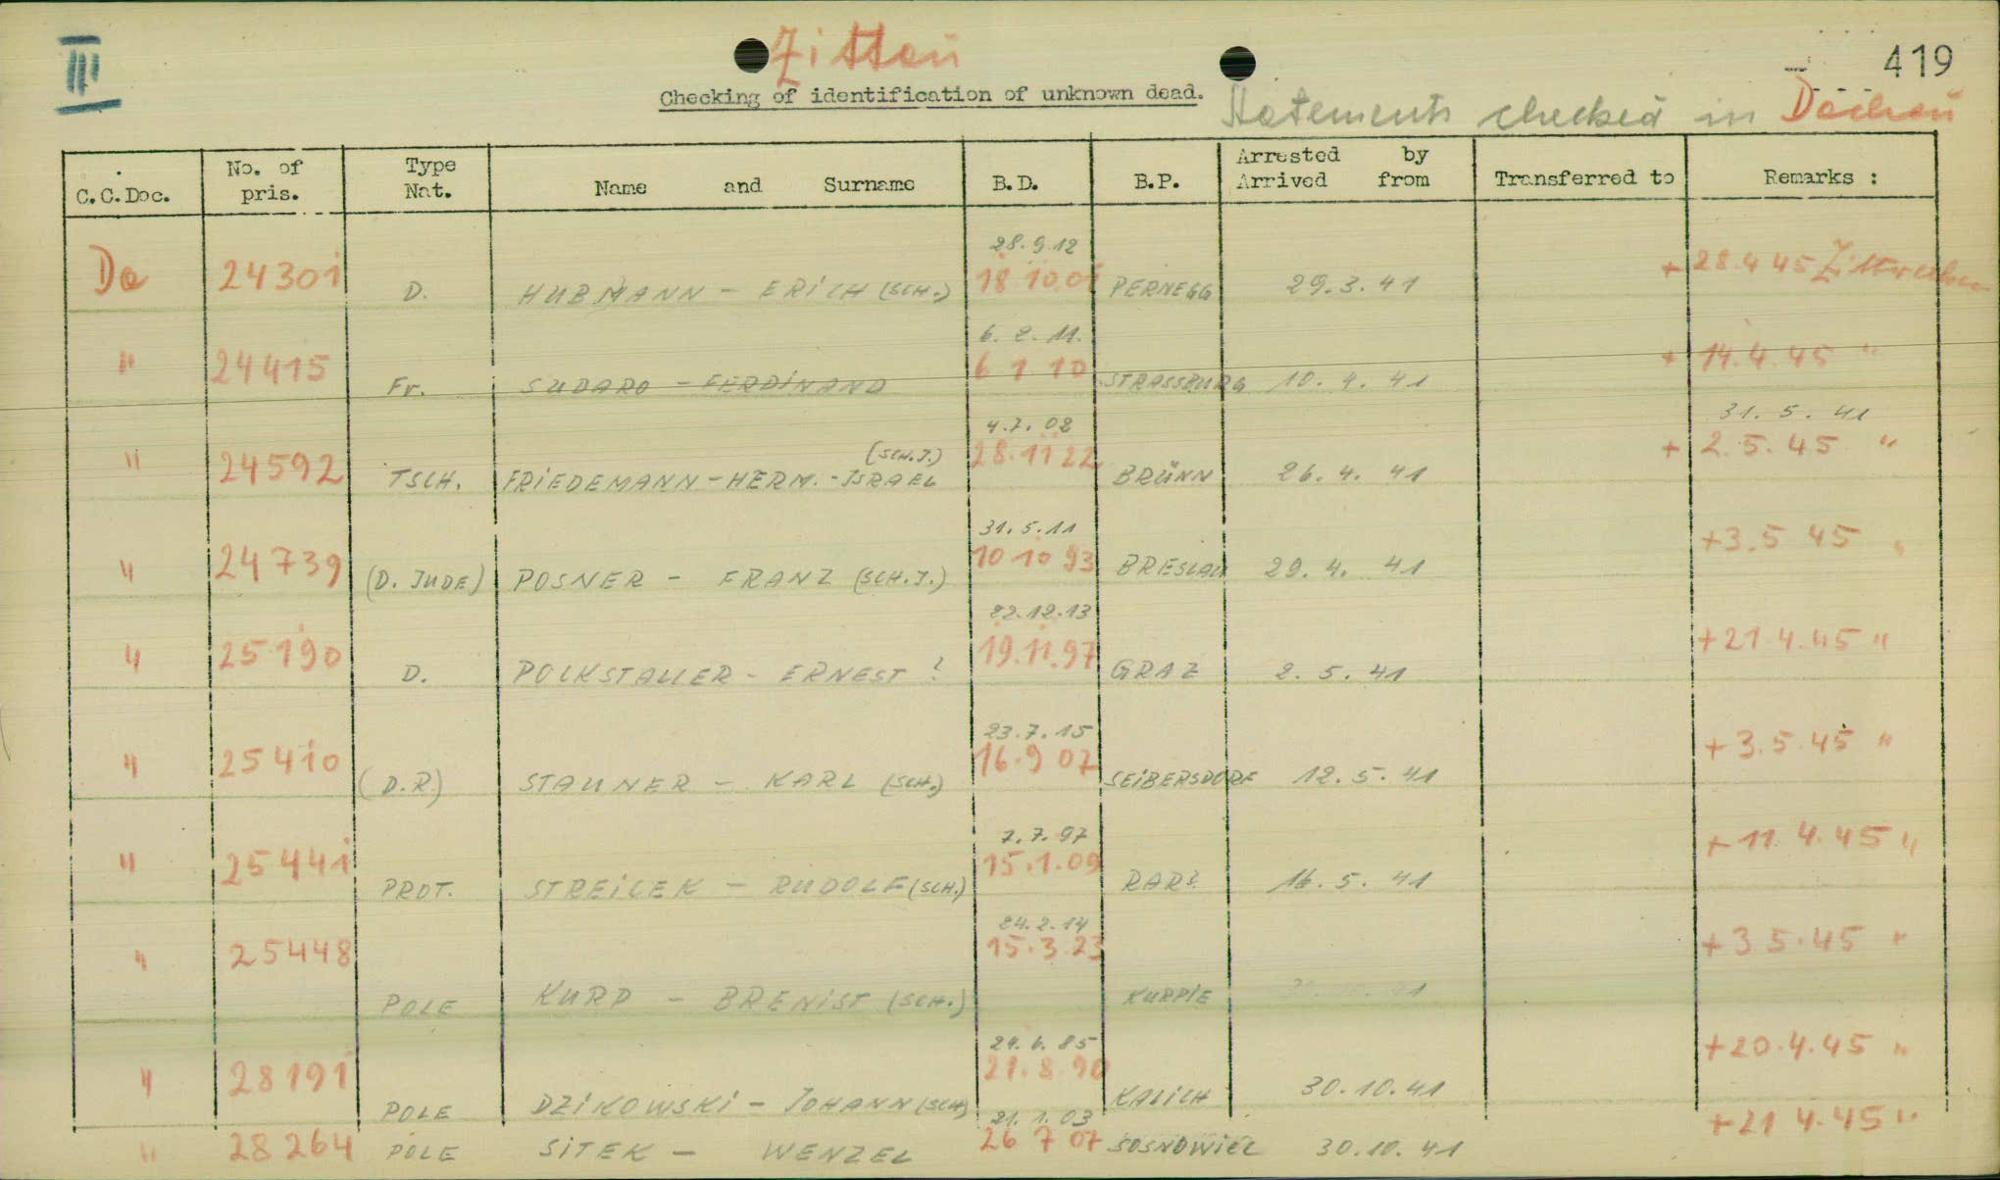 III Zittau 419
Checking of identification of unknown dead. Statements checked in Dachau
C.C.Doc. No. of pris. Type Nat. Name and Surname B.D. B.P. Arrested by Arrived from Transferred to Remarks :
28.9.12
Da 24301 D. HUBMANN - ERICH (SCH.) 18 10.01 PERNEGG 29.3.41 + 28.4 45
6. 2. 11.
" 24415 Fr. SUDARO - FERDINAND 6 1 10 STRASSBURG 10. 4. 41 + 14.4.45 "
4.7. 02 31. 5. 41
" 24592 TSCH. FRIEDEMANN - HERM. - ISRAEL (SCH.J.) 28.11 22 BRÜNN 26. 4. 41 + 2.5.45 "
31. 5. 11
" 24739 (D. JUDE) POSNER - FRANZ (SCH.J.) 10 10 93 BRESLAU 29. 4. 41 +3.5 45 "
22.12.13
" 25190 D. POLKSTALLER - ERNEST ? 19.11.97 GRAZ 2. 5. 41 +21 4.45 "
23.7.15
" 25410 (D.R.) STAUNER - KARL (SCH.) 16.9 07 SEIBERSDORF 12. 5. 41 +3.5.45 "
7.7.97
" 25441 PROT. STREICEK - RUDOLF (SCH.) 15.1.09 16. 5. 41 + 11 4.45 "
24.2.14
" 25448 POLE KURP - BRENIST (SCH.) 15.3.23 KURPIE +3 5.45 "
24.6.85
" 28191 POLE DZIKOWSKI - JOHANN (SCH) 21.8.90 KALICH 30.10.41 +20.4.45 "
21.1.03
" 28264 POLE SITEK - WENZEL 26 7 07 SOSNOWIEC 30.10.41 +21 4.45 "